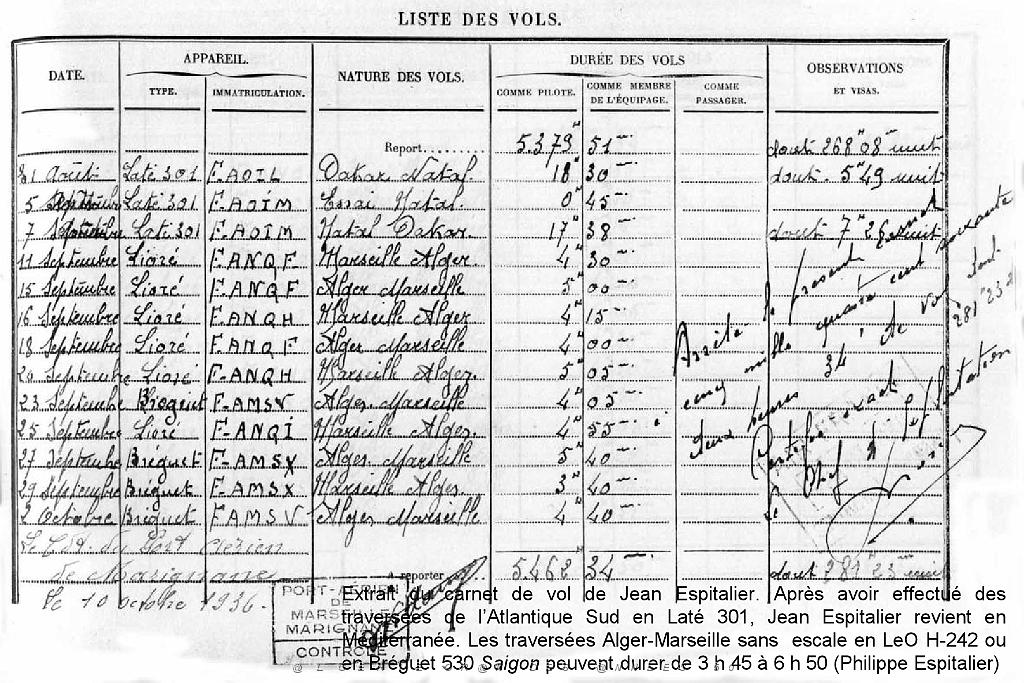 LISTE DES VOLS.
DATE. APPAREIL. NATURE DES VOLS. DURÉE DES VOLS OBSERVATIONS ET VISAS.
TYPE. IMMATRICULATION. COMME PILOTE. COMME MEMBRE DE L'ÉQUIPAGE. COMME PASSAGER.
Report......... 5.379 51 dont 268 08 nuit
31 Août Laté 301 F.AOIL Dakar Natal 18 30 dont 5 49 nuit
5 Septembre Laté 301 F.AOIM Essai Natal. 0 45
7 Septembre Laté 301 F.AOIM Natal Dakar 17 38 dont 7 28 nuit
11 Septembre Lioré F.ANQF Marseille Alger 4 30
15 Septembre Lioré F.ANQF Alger Marseille 5 00
16 Septembre Lioré F.ANQH Marseille Alger 4 15
18 Septembre Lioré F.ANQF Alger Marseille 4 00
20 Septembre Lioré F.ANQH Marseille Alger. 5 05
23 Septembre Breguet F.AMSV Alger Marseille 4 05
25 Septembre Lioré F.ANQI Marseille Alger. 4 55
27 Septembre Bréguet F.AMSX Alger Marseille 5 40
29 Septembre Bréguet F.AMSX Marseille Alger. 3 40
2 Octobre Bréguet F.AMSV Alger Marseille 4 40
Arrêté le présent
cinq mille quatre cent soixante
deux heures 34' de vol dont 281 23
Certifié exact
Le Chef d' exploitation
Le Cdt. du Port Aérien
de Marignane
A reporter 5.462 34 dont 281 23 nuit
le 10 octobre 1936.
PORT-AÉRIEN
DE
MARSEILLE
MARIGNANE
CONTRÔLE
Extrait du carnet de vol de Jean Espitalier. Après avoir effectué des
traversées de l'Atlantique Sud en Laté 301, Jean Espitalier revient en
Méditerranée. Les traversées Alger-Marseille sans escale en LeO H-242 ou
en Bréguet 530 Saigon peuvent durer de 3 h 45 à 6 h 50 (Philippe Espitalier)